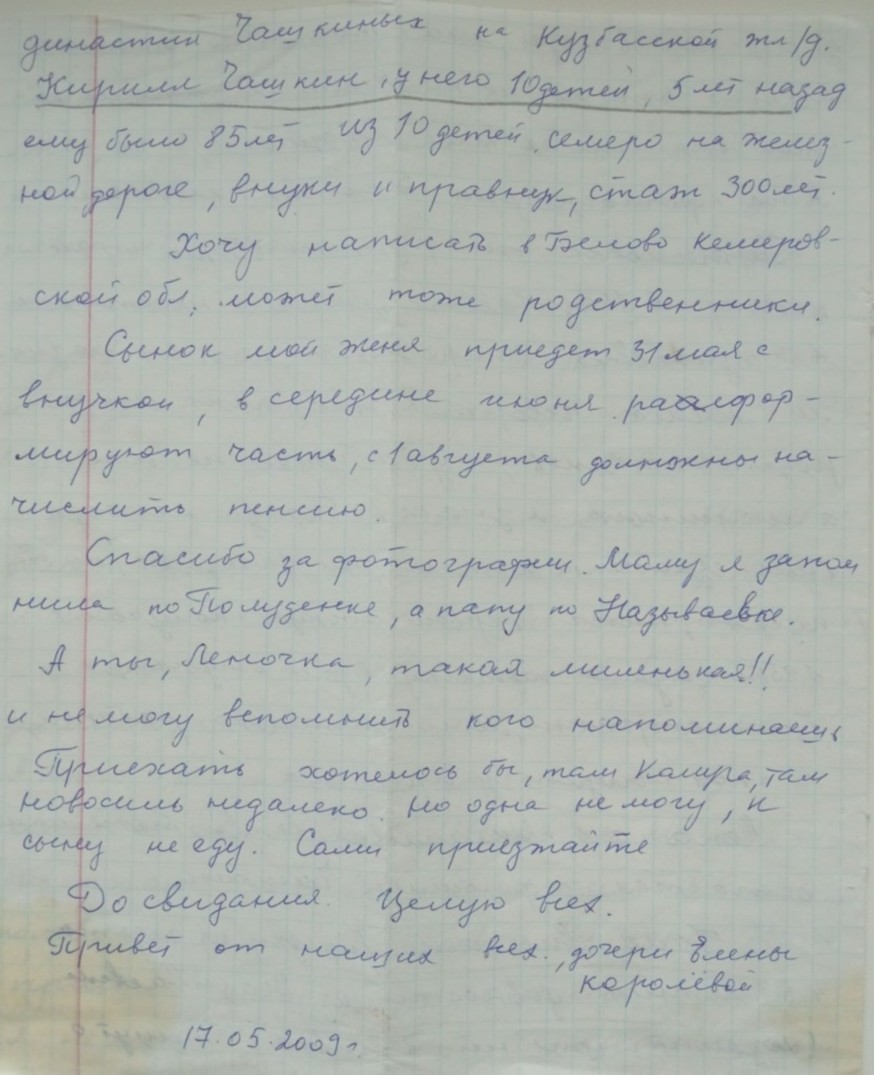 династии Чашкиных на Кузбасской жл/д.
Кирилл Чашкин, у него 10 детей, 5 лет назад
ему было 85 лет из 10 детей семеро на желез-
ной дороге, внуки и правнук, стаж 300 лет.
Хочу написать в Белово Кемеров-
ской обл, может тоже родственники.
Сынок мой Женя приедет 31 мая с
внучкой, в середине июня расфор-
мируют часть, с 1 августа должны на-
числить пенсию.
Спасибо за фотографии. Маму я запом
нила по Полуденке, а папу по Называевке.
А ты, Леночка, такая миленькая!!
и не могу вспомнить кого напоминаешь
Приехать хотелось бы, там Капира, там
Новосиль недалеко. Но одна не могу, и к
сыну не еду. Сами приезжайте
До свидания. Целую всех.
Привет от наших всех, дочери Елены
Королёвой
17.05.2009г.